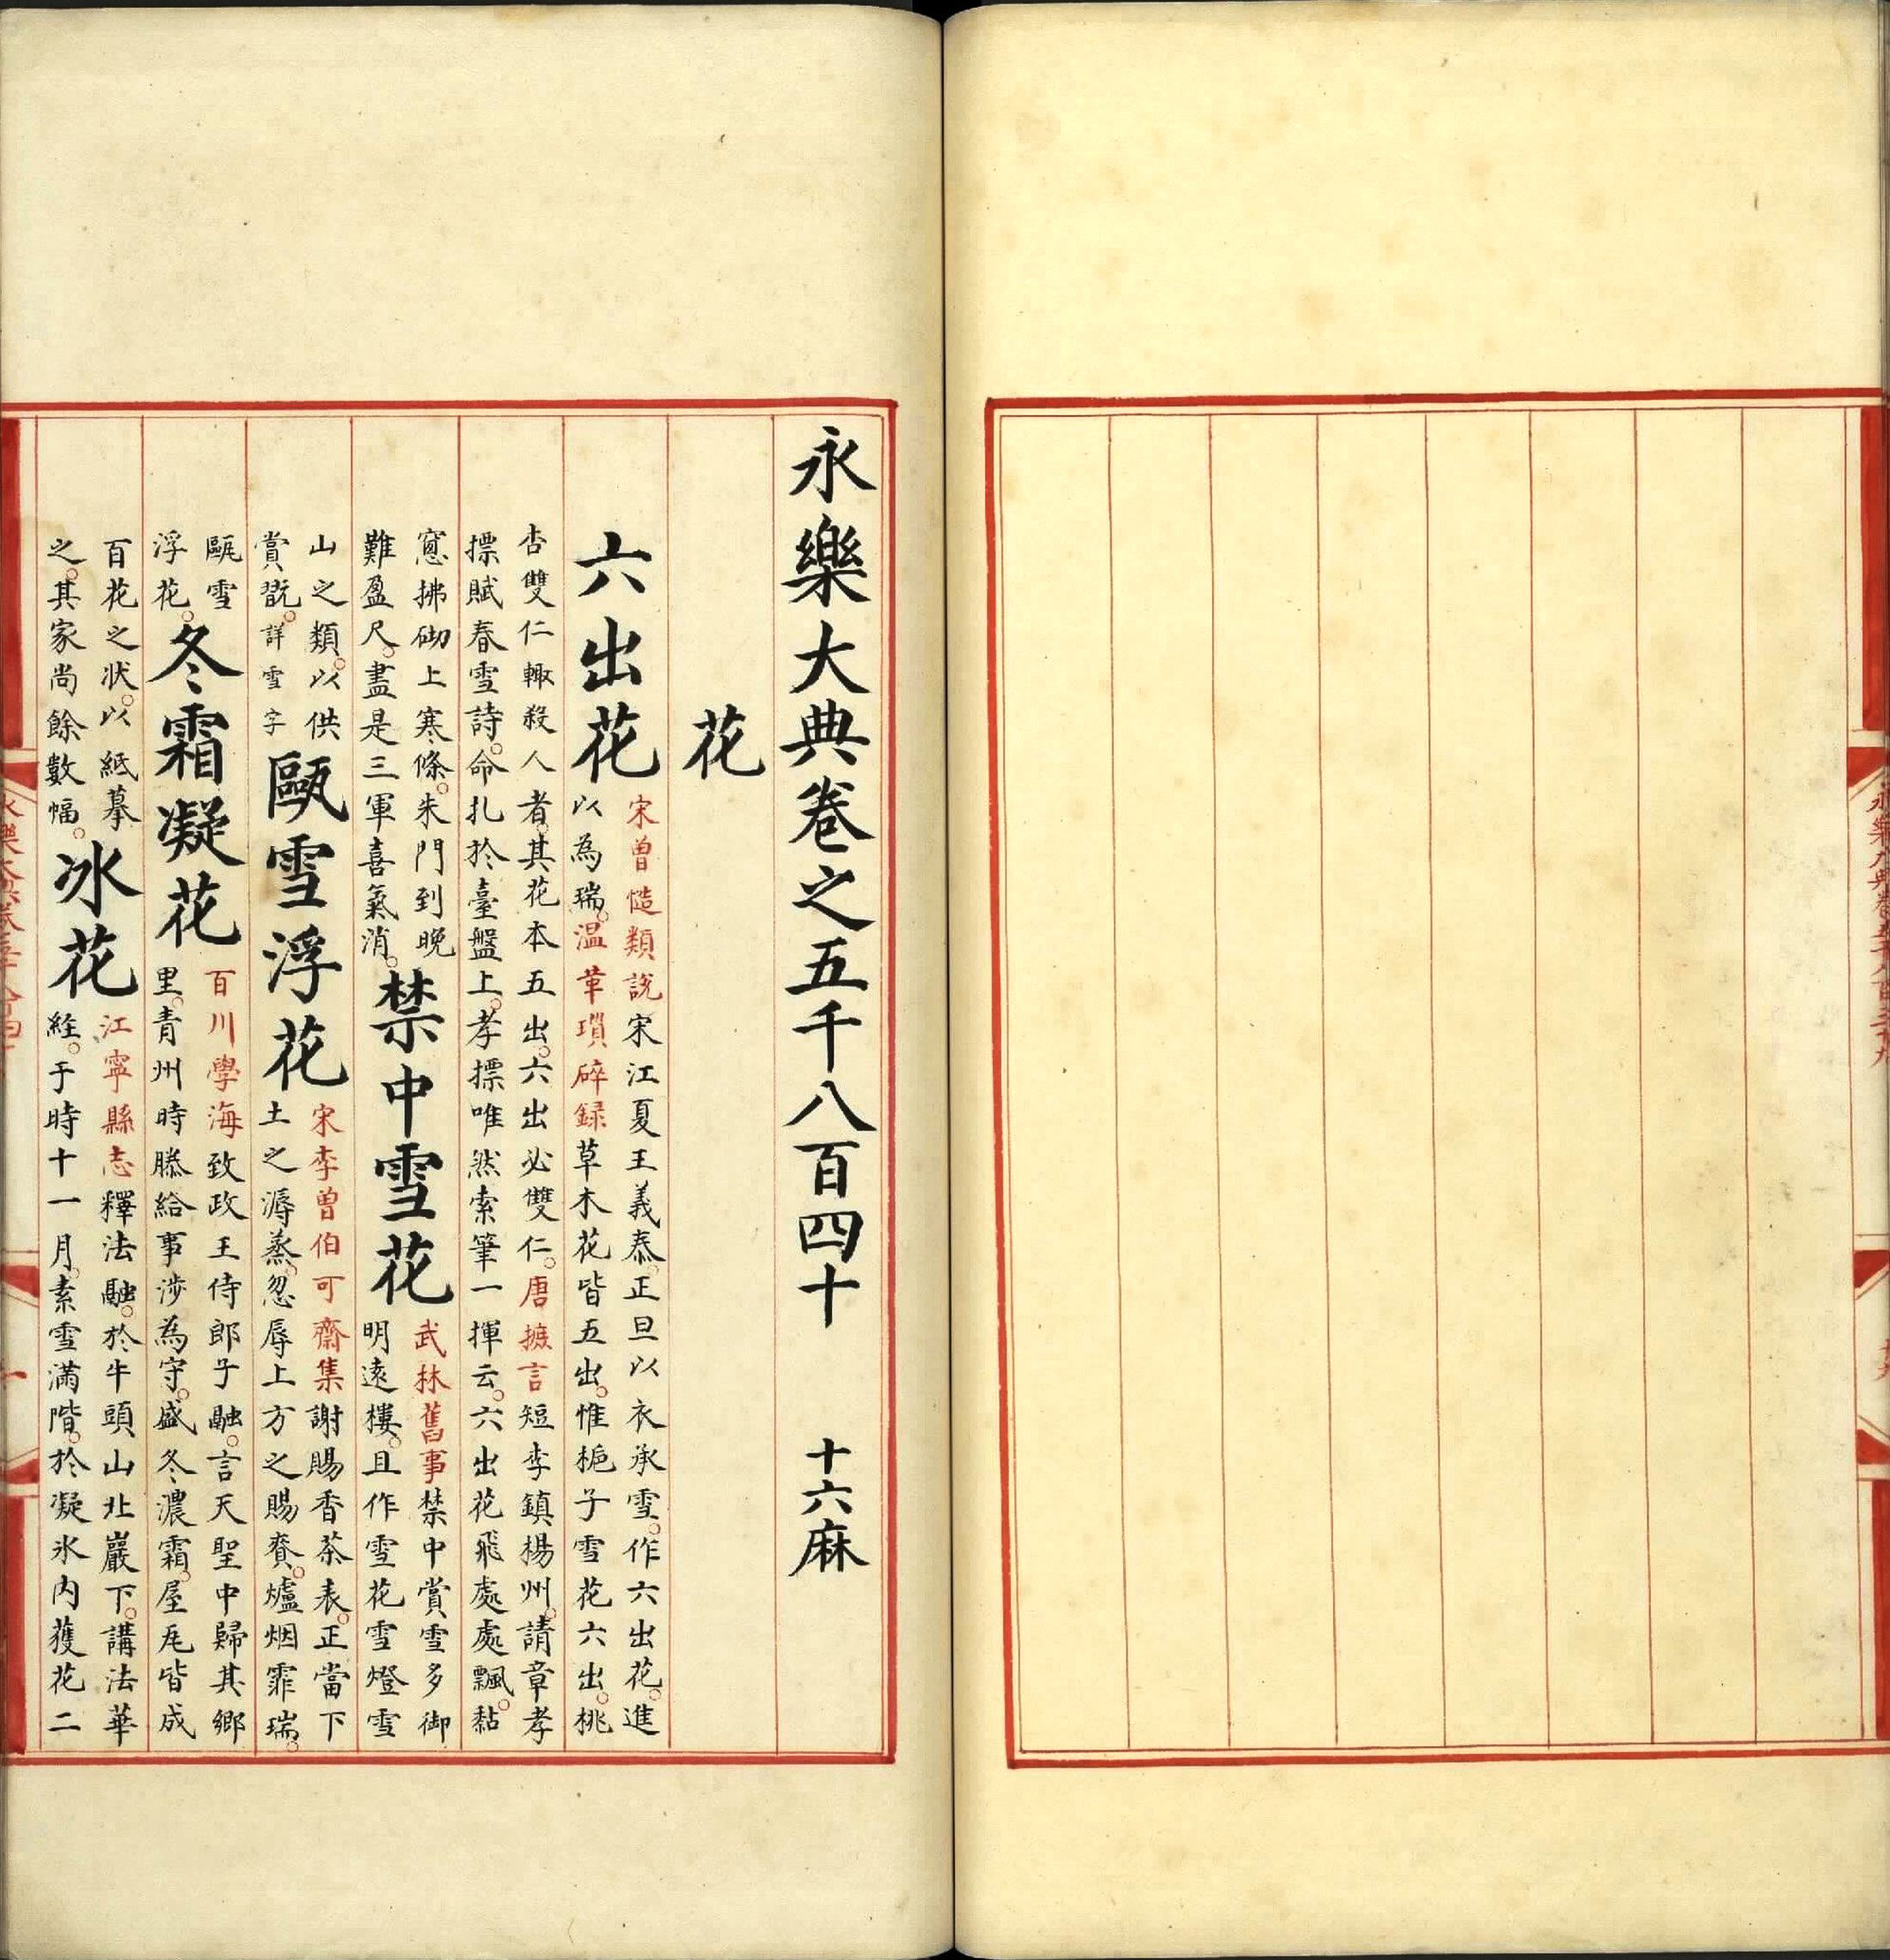 永樂大典卷之五千八百四十 十六麻
花
六出花
宋曾慥類説宋江夏王義恭正旦以衣承雪作六出花進
以為瑞温革瑣碎録草木花皆五出惟梔子雪花六出桃
杏雙仁輙殺人者其花本五出六出必雙仁唐摭言短李鎮楊州請章孝
摽賦春雪詩命扎於臺盤上孝摽唯然索筆一揮云六出花飛處處飄黏
窓拂砌上寒條朱門到晚
難盈尺盡是三軍喜氣消
禁中雪花
武林舊事禁中賞雪多御
明遠樓且作雪花雪燈雪
山之類以供
賞翫詳雪字
甌雪浮花
宋李曾伯可齋集謝賜香茶表正當下
土之溽蒸忽辱上方之賜賚爐烟霏瑞
甌雪
浮花
冬霜凝花
百川學海致政王侍郎子融言天聖中歸其鄉
里青州時滕給事涉為守盛冬濃霜屋瓦皆成
百花之状以紙摹
之其家尚餘數幅
冰花
江寧縣志釋法融於牛頭山北巖下講法華
經于時十一月素雪滿階於凝氷内獲花二